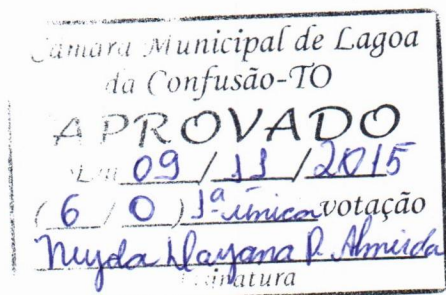 Câmara Municipal de Lagoa
da Confusão-TO
APROVADO
Em 09 / 11 / 2015
( 6 / 0 ) 1ª única votação
Dayana P. Almeida
Assinatura